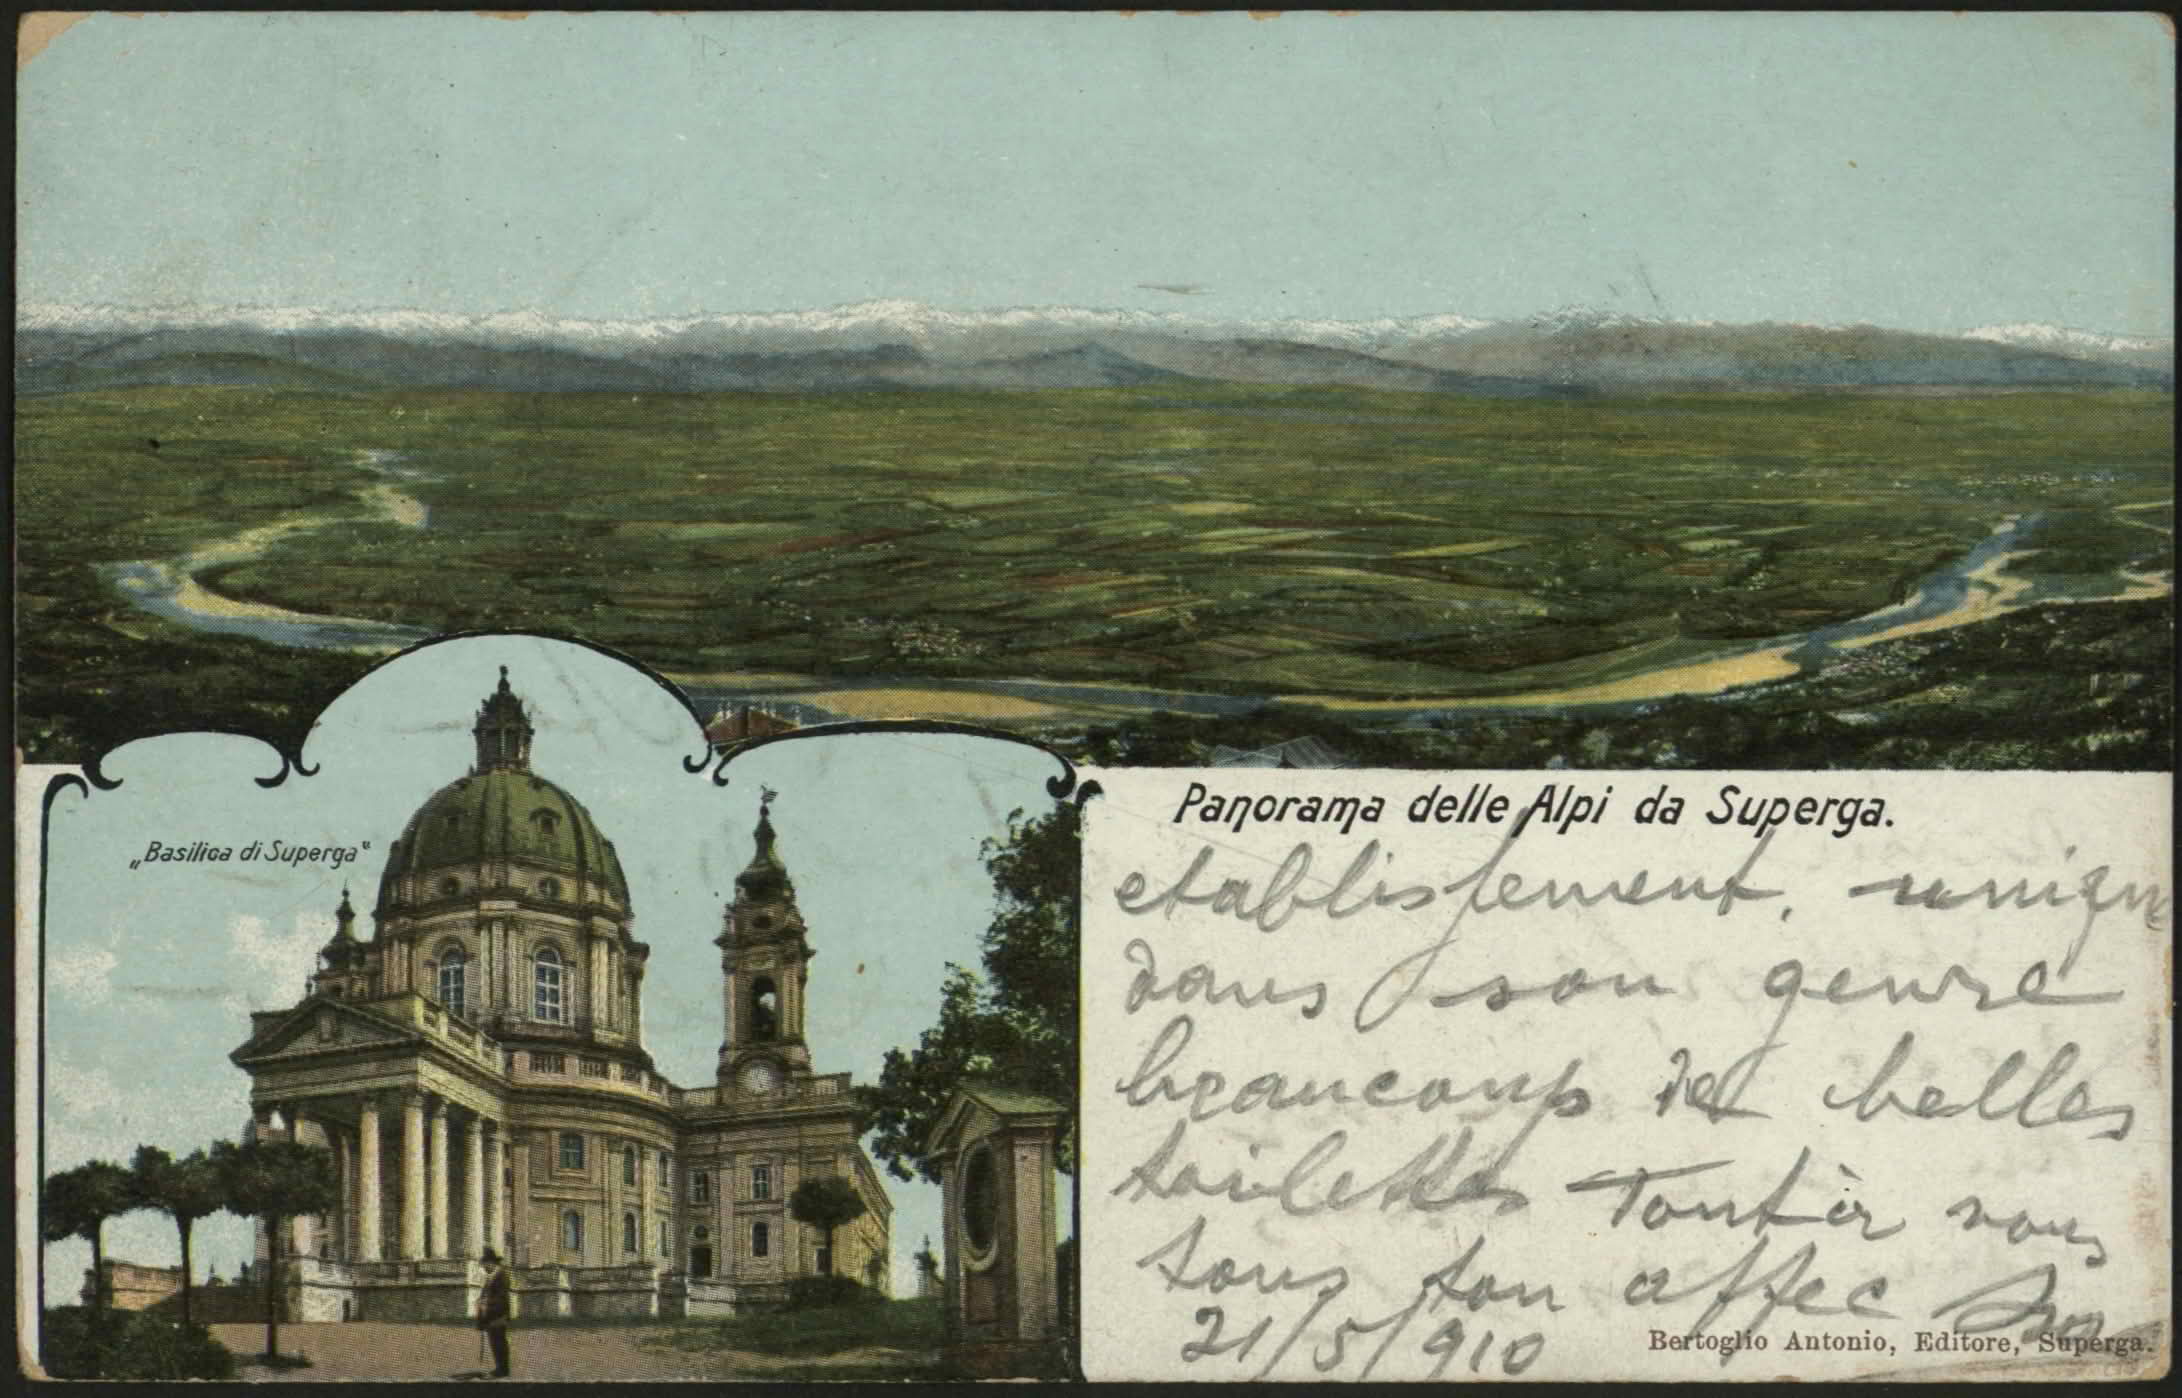 Panorama delle Alpi da Superga.
„Basilica di Superga“
etablissement, uniqu
dans son genre
beaucoup de belles
toilettes Tout à vous
tous ton affec
21/5/910
Bertoglio Antonio, Editore, Superga.